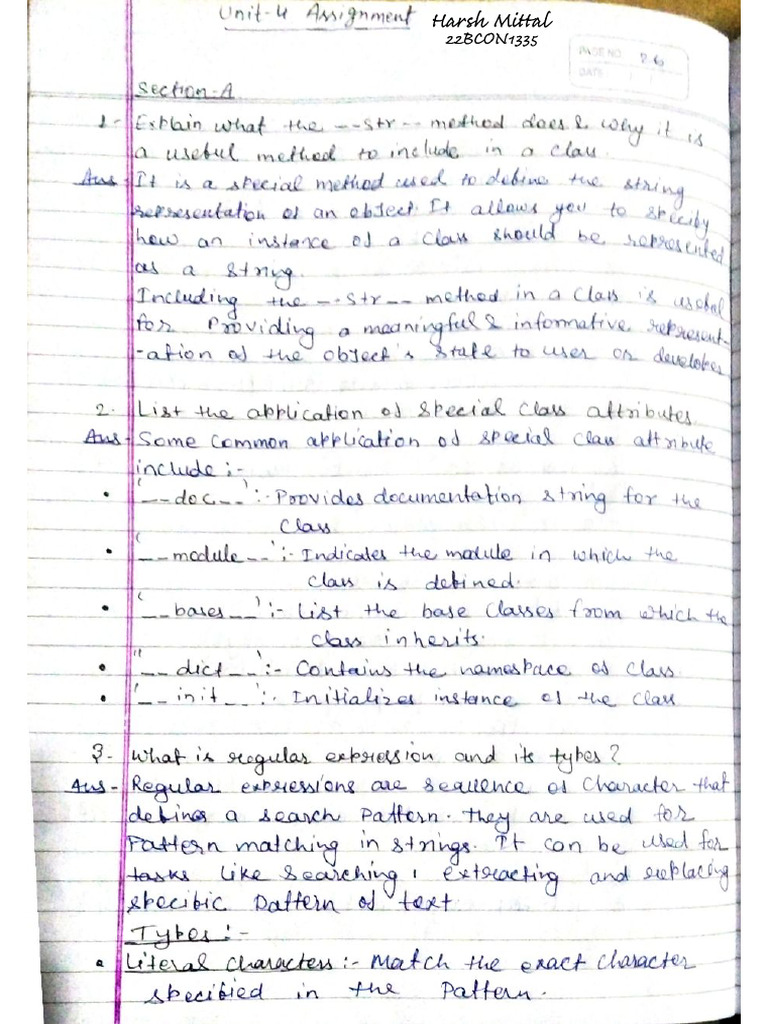 Unit-4 Assignment Harsh Mittal
22BCON1335
PAGE NO. 26
DATE
Section-A
1- Explain what the --str-- method does & why it is
a useful method to include in a class.
Ans- It is a special method used to define the string
representation of an object. It allows you to specify
how an instance of a class should be represented
as a string.
Including the --str-- method in a class is useful
for Providing a meaningful & informative represent-
-ation of the object's state to user or developer
2. List the application of special class attributes.
Ans- Some common application of special class attribute
include :-
• '__doc__' :- Provides documentation string for the
class
• '__module__' :- Indicates the module in which the
class is defined.
• '__bases__' :- List the base classes from which the
class inherits.
• '__dict__' :- Contains the namespace of class
• '__init__' :- Initializes instance of the class
3- What is regular expression and its types?
Ans- Regular expressions are sequence of character that
defines a search pattern. They are used for
Pattern matching in strings. It can be used for
tasks like searching, extracting and replacing
specific pattern of text.
Types :-
• Literal characters :- Match the exact character
specified in the Pattern.